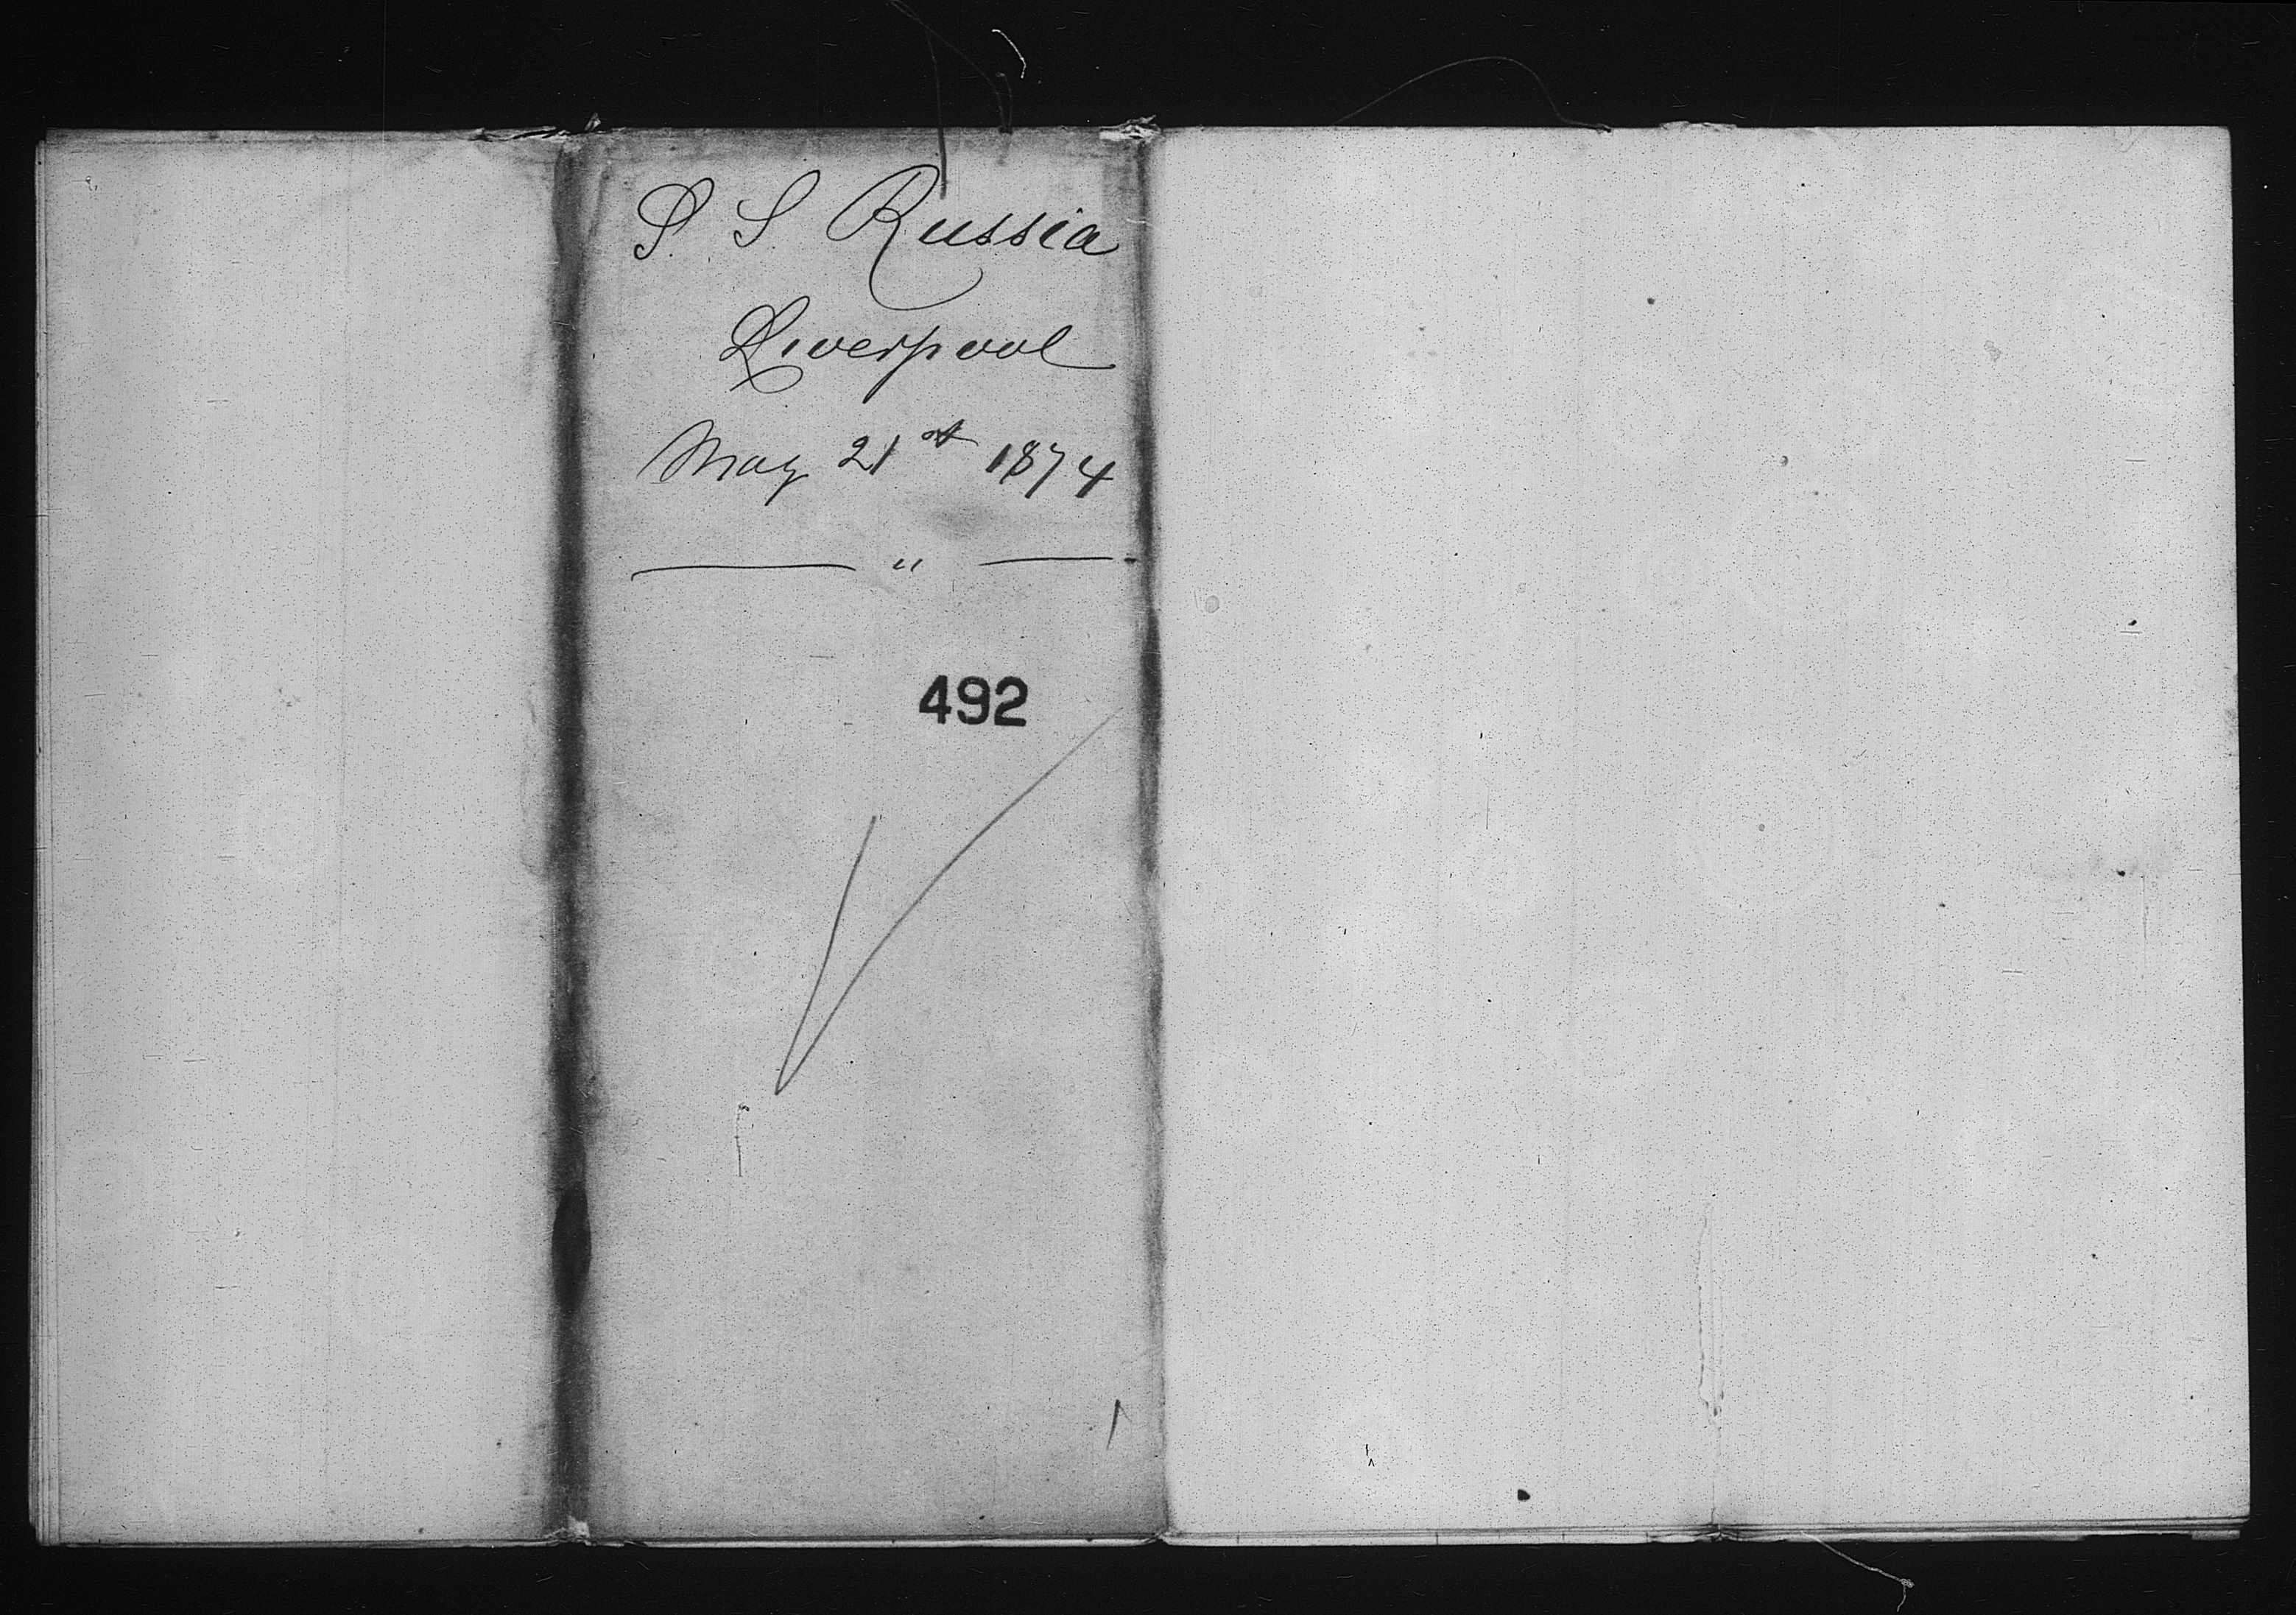 S. S. Russia
Liverpool
May 21st 1874
— " —
492